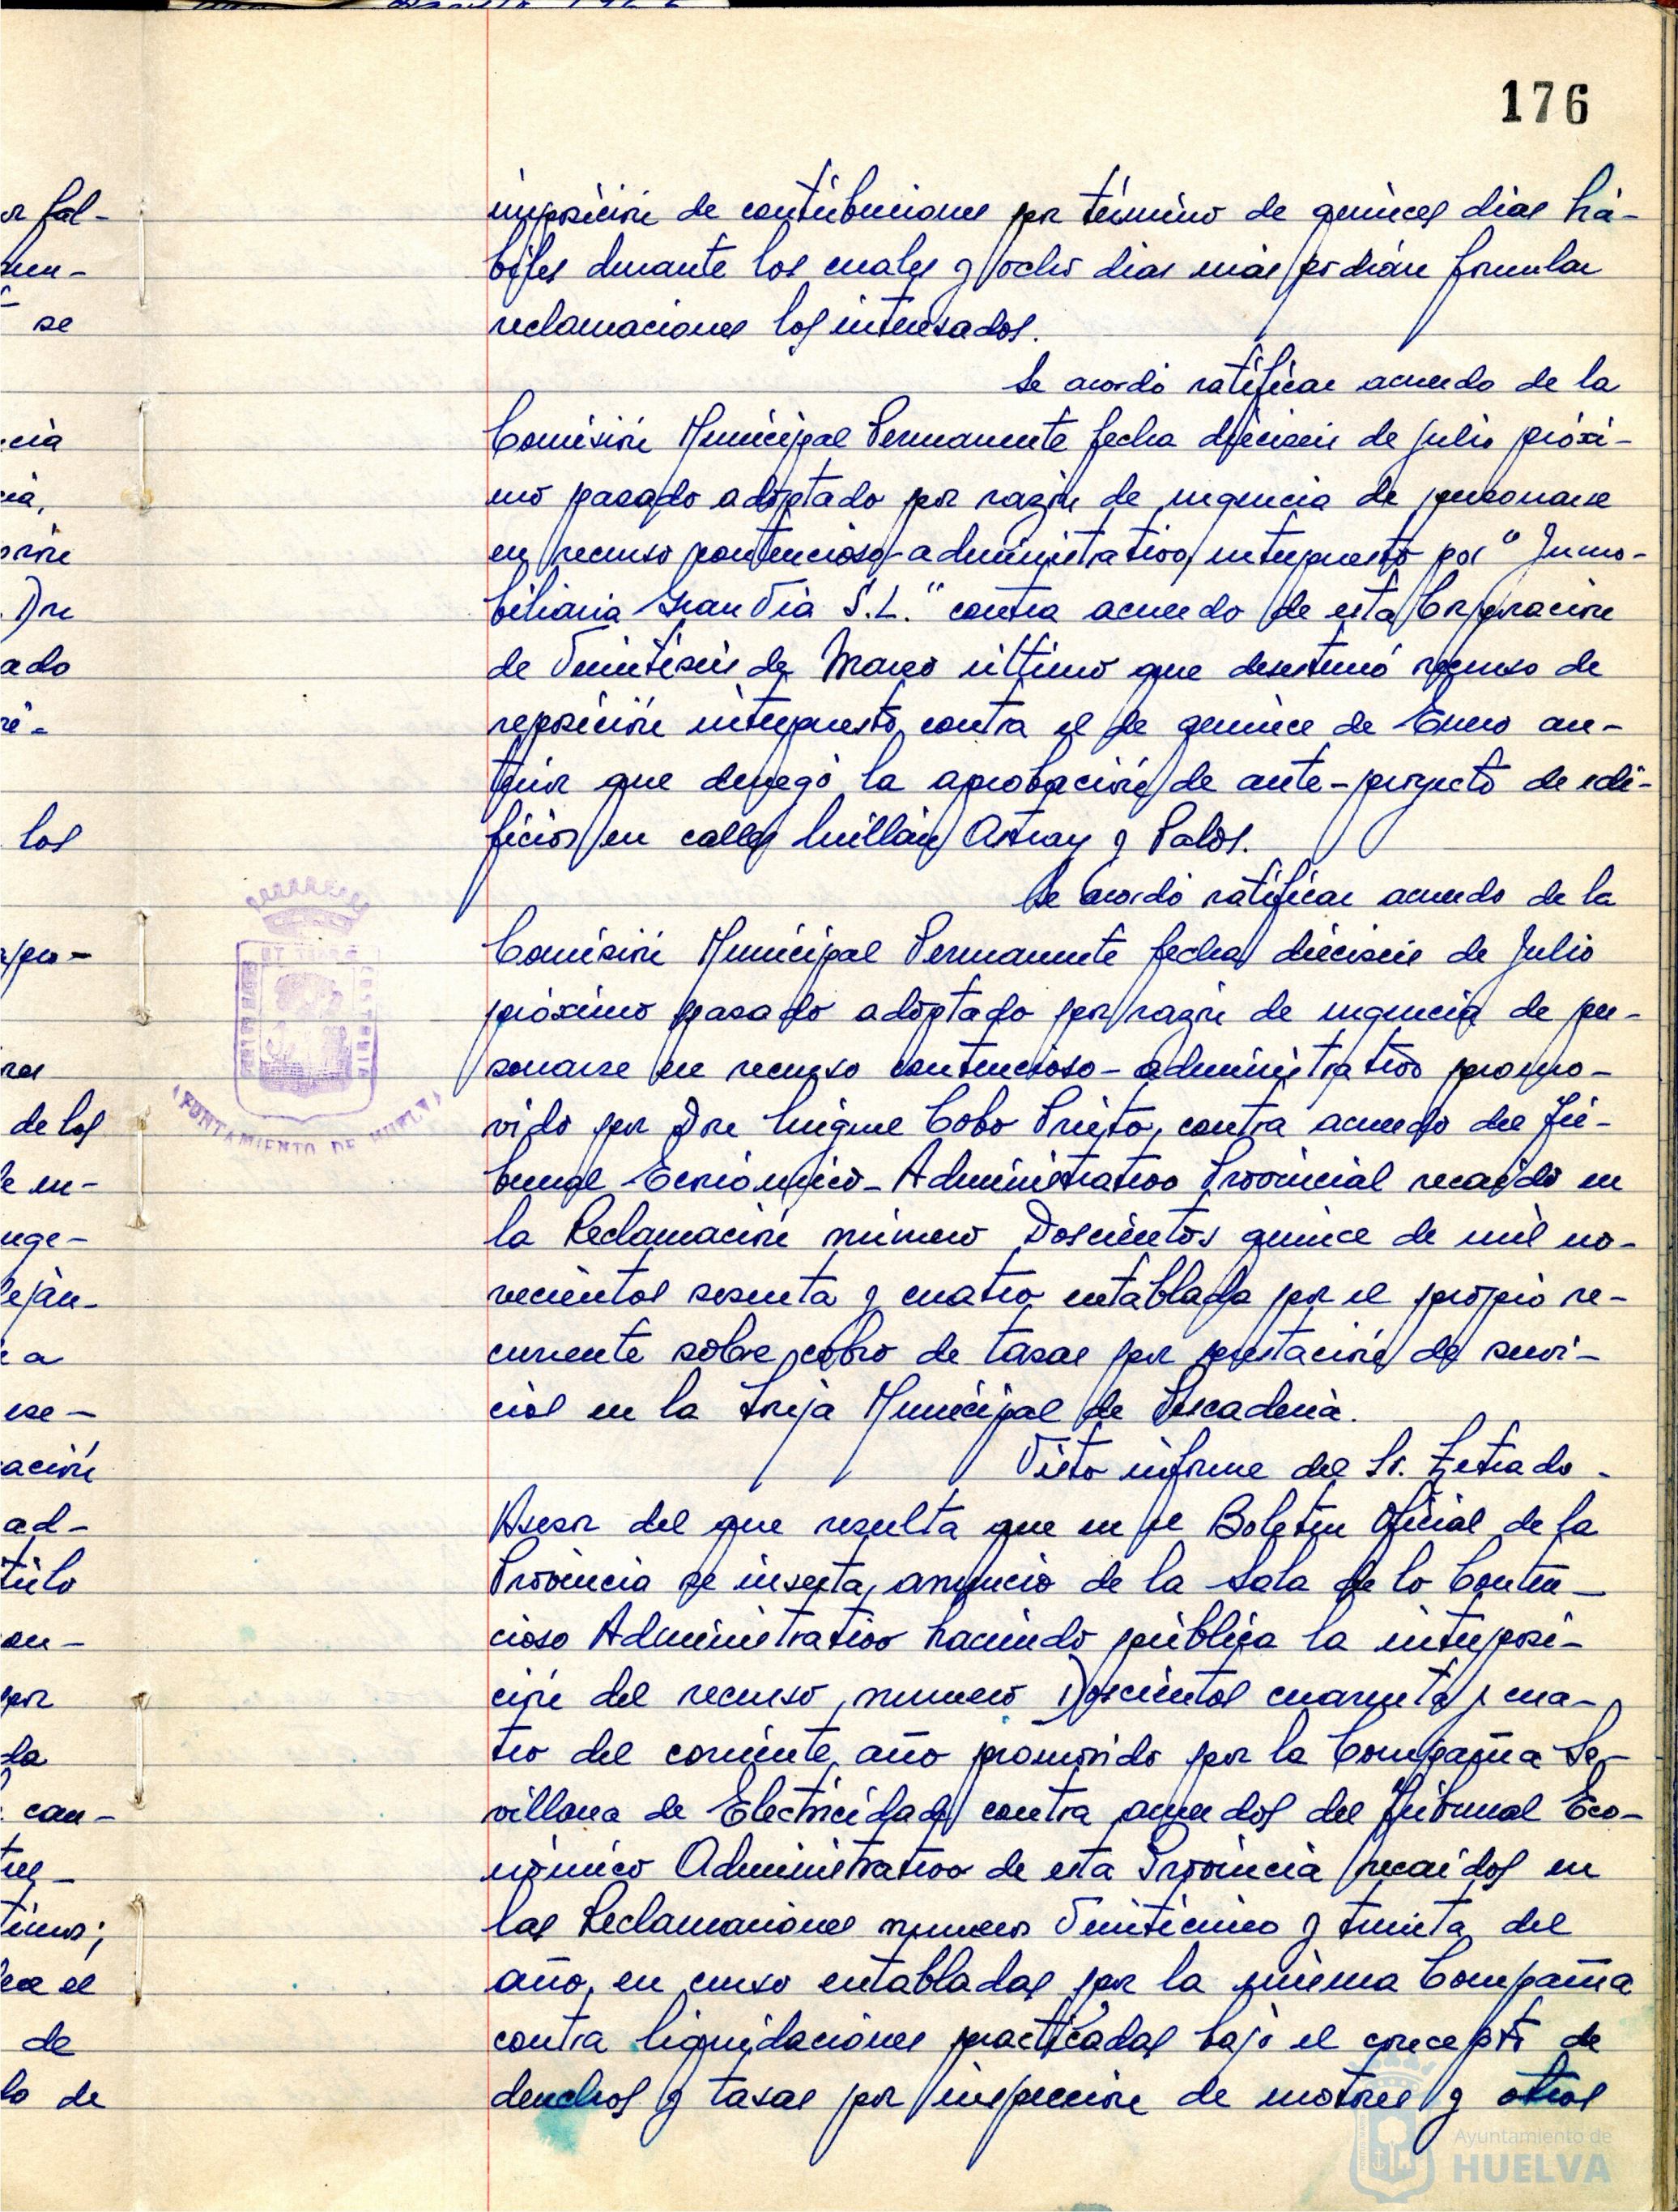 176
imposición de contribuciones por término de quinces dias há-
biles durante los cuales y ocho dias más podrán formular
reclamaciones los interesados.
Se acordó ratificar acuerdo de la
Comisión Municipal Permanente fecha dieciseis de Julio próxi-
mo pasado adoptado por razón de urgencia de personarse
en recurso contencioso-administrativo, interpuesto por "Inmo-
biliaria Gran Via S.L." contra acuerdo de esta Corporación
de Veintiseis de Marzo último que desestimó recurso de
reposición interpuesto contra el de quince de Enero an-
terior que denegó la aprobación de ante-proyecto de edi-
ficios en calles Millán Astray y Palos.
Se acordó ratificar acuerdo de la
Comisión Municipal Permanente fecha dieciseis de Julio
próximo pasado adoptado por razón de urgencia de per-
sonarse en recurso contencioso-administrativo promo-
vido por Don Miguel Cobo Prieto, contra acuerdo del Tri-
bunal Económico-Administrativo Provincial recaido en
la Reclamación número Doscientos quince de mil no-
vecientos sesenta y cuatro entablada por el propio re-
currente sobre cobro de tasas por prestación de servi-
cios en la Lonja Municipal de Pescadería.
Visto informe del Sr. Letrado-
Asesor del que resulta que en el Boletín Oficial de la
Provincia se inserta anuncio de la Sala de lo Conten-
cioso Administrativo haciendo pública la interposi-
ción del recurso número Doscientos cuarenta y cua-
tro del corriente año promovido por la Compañia Se-
villana de Electricidad contra acuerdos del Tribunal Eco-
nómico Administrativo de esta Provincia recaídos en
las Reclamaciones números Veinticinco y treinta del
año en curso entabladas por la misma Compañia
contra liquidaciones practicadas bajo el concepto de
derechos y tasas por inspección de motores y otros
or fal-
se
ado
los
de los
ación
ad-
por
la
de
lo de
AYUNTAMIENTO DE HUELVA
Ayuntamiento de
HUELVA